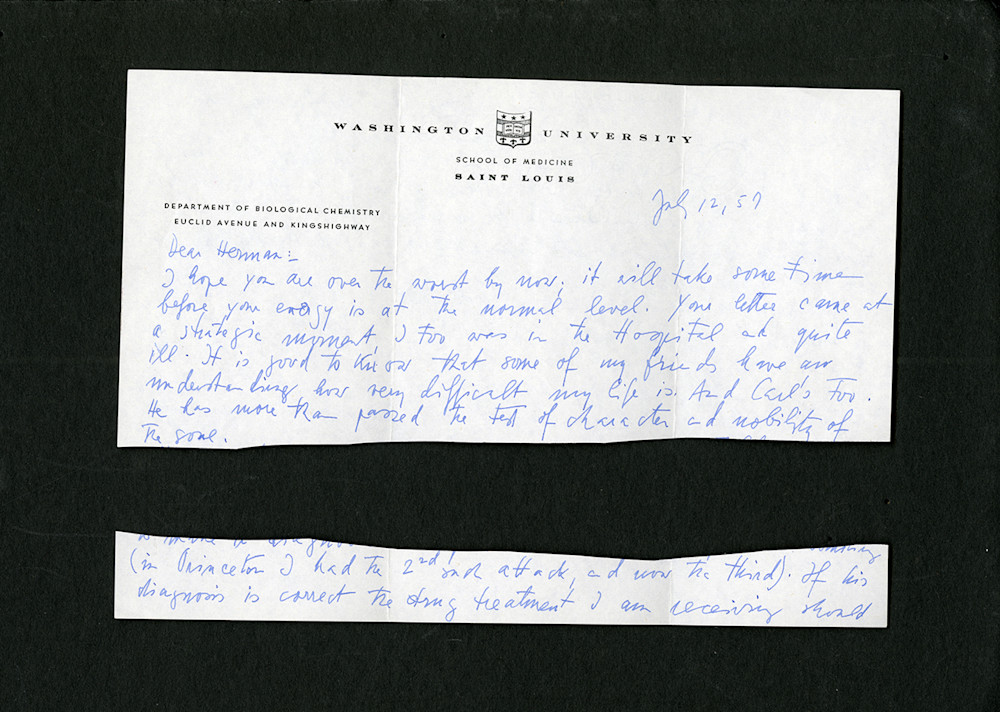 WASHINGTON UNIVERSITY
SCHOOL OF MEDICINE
SAINT LOUIS
July 12, 57
DEPARTMENT OF BIOLOGICAL CHEMISTRY
EUCLID AVENUE AND KINGSHIGHWAY
Dear Herman:–
I hope you are over the worst by now; it will take some time
before your energy is at the normal level. Your letter came at
a strategic moment I too was in the Hospital and quite
ill. It is good to know that some of my friends have an
understanding how very difficult my life is. And Carl's too.
He has more than passed the test of character and nobility of
the soul.
(in Princeton I had the 2nd such attack, and now the third). If his
diagnosis is correct the drug treatment I am receiving should